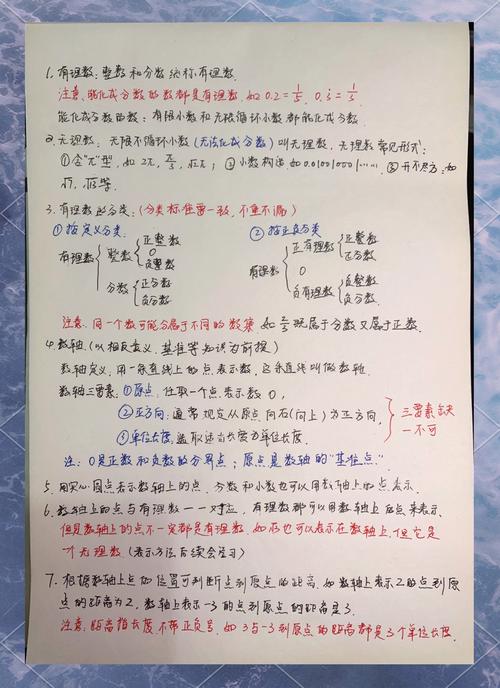 1. 有理数:整数和分数统称有理数.
注意:能化成分数的数都是有理数.如0.2=1/5, 0.3̇=1/3
能化成分数的数:有限小数和无限循环小数都能化成分数
2. 无理数:无限不循环小数(无法化成分数)叫无理数,无理数常见形式:
①含"π"型,如2π, ②小数构造,如0.010010001……. ③开不尽方:如
等.
3. 有理数的分类:(分类标准需一致,不重不漏)
①按定义分类: ②按正负分类:
有理数 整数 正整数 0 负整数 分数 正分数 负分数
有理数 正有理数 正整数 正分数 0 负有理数 负整数 负分数
注意:同一个数可能分属于不同的数集 如 既属于分数又属于正数.
4. 数轴.(以相反意义、基准等知识为前提)
数轴定义:用一条直线上的点表示数,这条直线叫做数轴.
数轴三要素:①原点:任取一个点表示数0,
②正方向:通常规定从原点向右(向上)为正方向, 三要素缺
③单位长度:选取适当长度为单位长度. 一不可
注:0是正数和负数的分界点;原点是数轴的"基准点".
5. 用实心圆点表示数轴上的点.分数和小数也可以用数轴上的点表示.
6. 数轴上的点与有理数一一对应,有理数都可以用数轴上的点来表示.
但是数轴上的点不一定都是有理数.如π也可以表示在数轴上,但它是
个无理数(表示方法后续会学习)
7. 根据数轴上点的位置可判断点到原点的距离.如数轴上表示2的点到原
点的距离为2,数轴上表示-3的点到原点的距离是3.
注意:距离指长度.不带正负号.如3与-3到原点的距离都是3个单位长度.